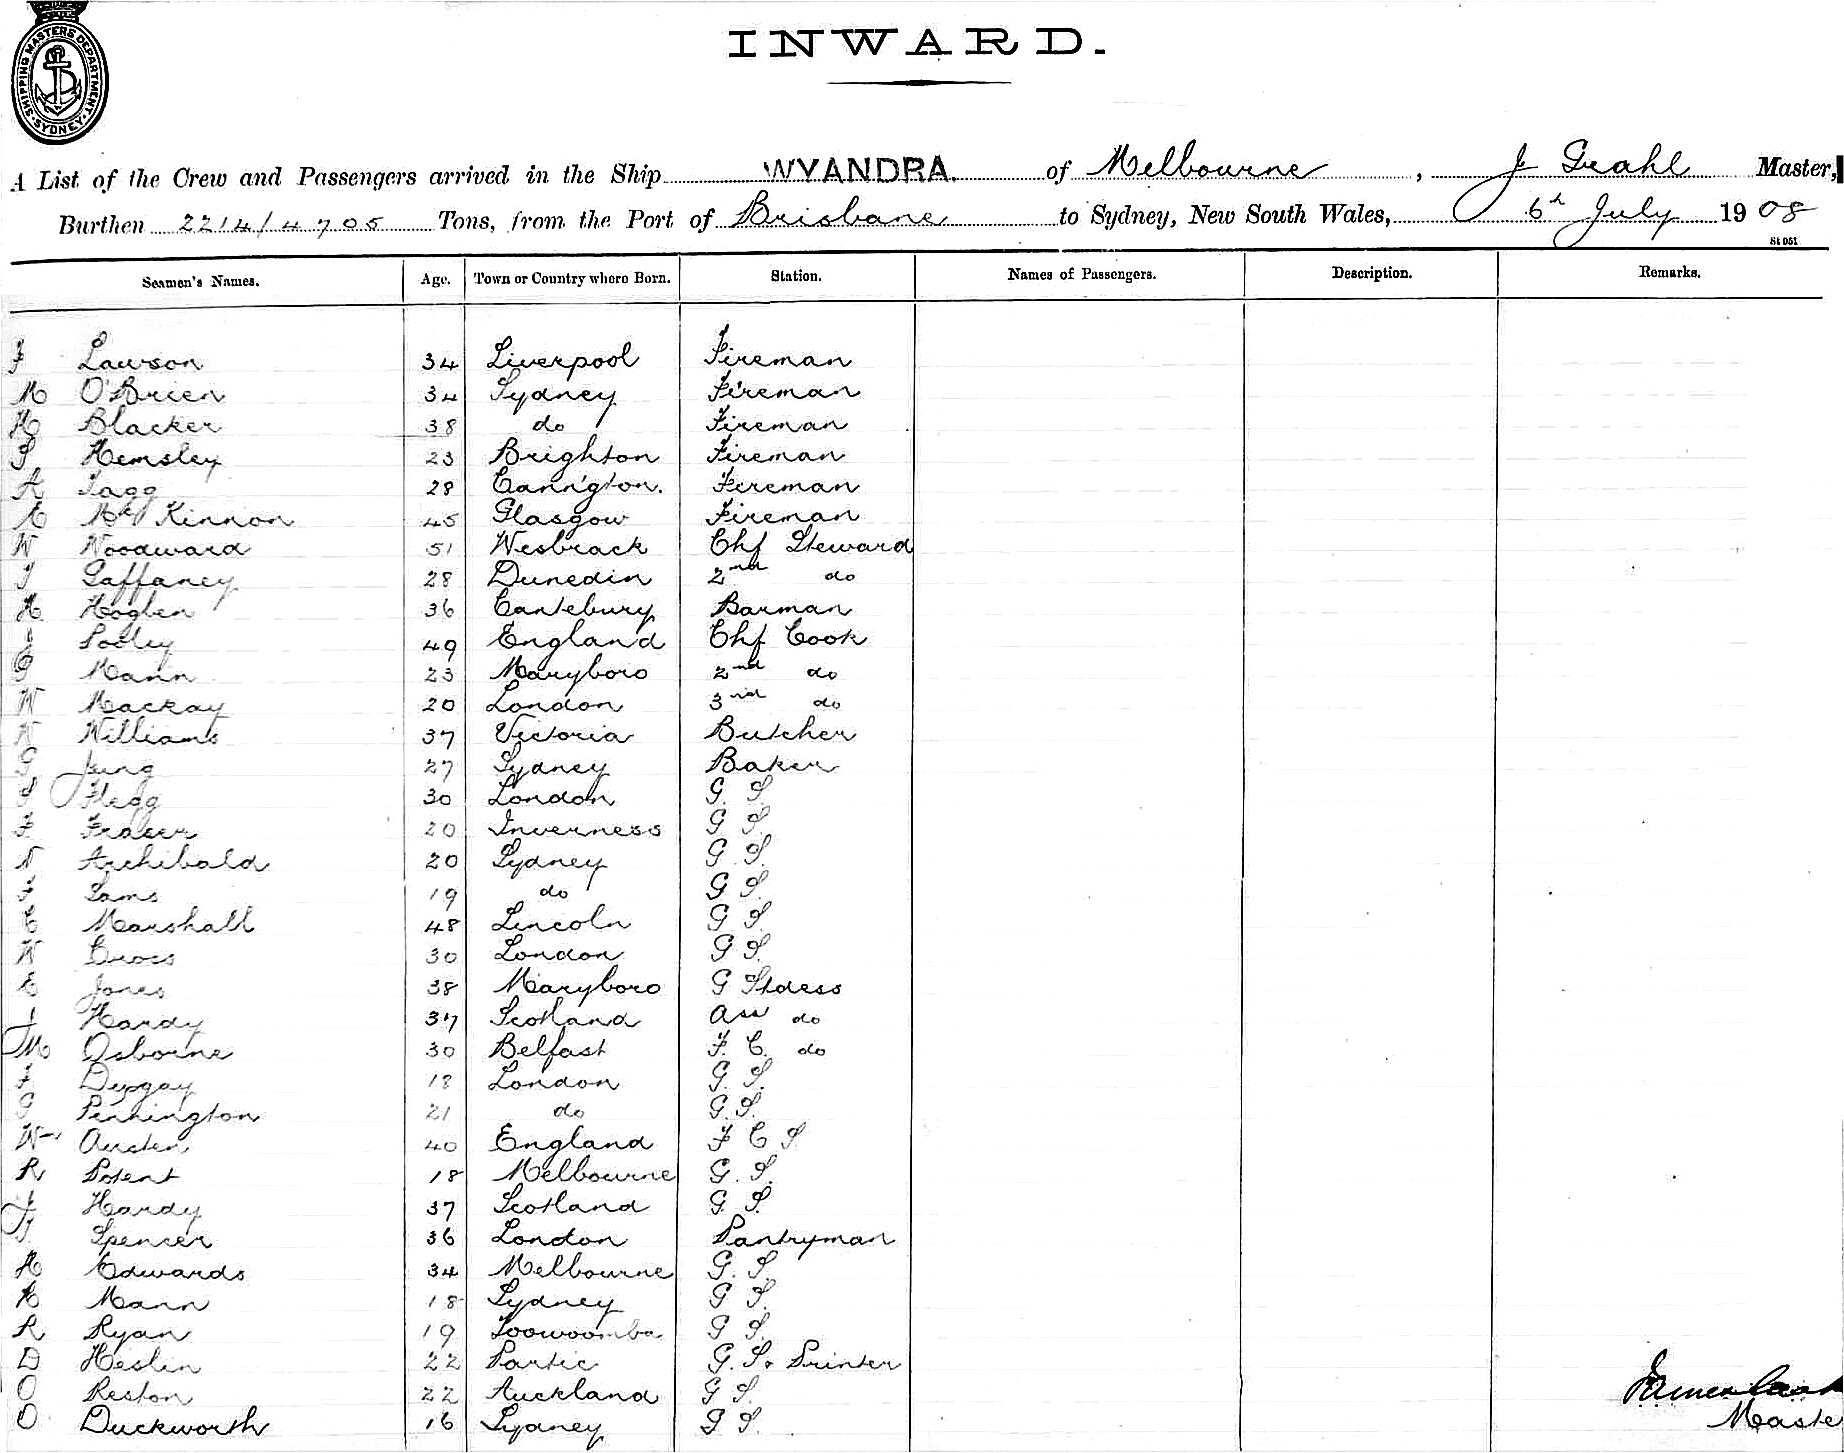 SHIPPING MASTERS DEPARTMENT. SYDNEY.
INWARD.
A List of the Crew and Passengers arrived in the Ship WYANDRA. of Melbourne, J Grahl Master,
Burthen 2214/4705 Tons, from the Port of Brisbane to Sydney, New South Wales, 6th July 1908
St 051
Seamen's Names. Age. Town or Country where Born. Station. Names of Passengers. Description. Remarks.
F Lawson 34 Liverpool Fireman
M O'Brien 34 Sydney Fireman
H Blacker 38 do Fireman
P Hemsley 23 Brighton Fireman
A Tagg 28 Carrington. Fireman
E McKinnon 45 Glasgow Fireman
W Woodward 51 Wesbrack Chf Steward
Gaffaney 28 Dunedin 2nd do
H Hogben 36 Cantebury Barman
J Sooley 49 England Chf Cook
G Mann 23 Maryboro 2nd do
W Mackay 20 London 3rd do
W Williams 37 Victoria Butcher
G Jung 27 Sydney Baker
Flegg 30 London G. S.
F Fraser 20 Inverness G S.
N Archibald 20 Sydney G. S.
Sams 19 do G S.
C Marshall 48 Lincoln G S.
W Cross 30 London G S.
E Jones 38 Maryboro G Stdess
J Hardy 37 Scotland Ass do
M Osborne 30 Belfast F. C. do
18 London G. S.
G Pennington 21 do G. S.
Wm Austen 40 England F C S
R Potent 18 Melbourne G. S.
J Hardy 37 Scotland G. S.
Spencer 36 London Pantryman
H Edwards 34 Melbourne G. S.
H Mann 18 Sydney G S.
R Ryan 19 Toowoomba G S.
D Heslin 22 Partic G. S. & Printer
O Reston 22 Auckland G S.
O Duckworth 16 Sydney G S.
James
Maste